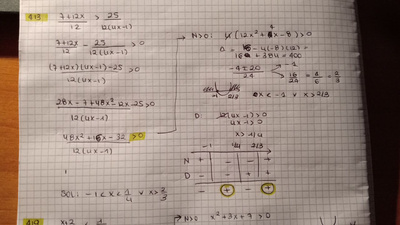 413
7+12x / 12 > 25 / 12(4x-1)
7+12x / 12 - 25 / 12(4x-1) > 0
(7+12x)(4x-1)-25 / 12(4x-1) > 0
28x-7+48x²-12x-25 / 12(4x-1) > 0
48x²+16x-32 / 12(4x-1) > 0
SOL: -1<x<1/4 v x>2/3
N>0: 4(12x²+4x-8)>0
Δ = 16-4(-8)(12) =
16+384=400
-4±20 / 24
-1
16/24 = 4/6 = 2/3
-1 2/3
x<-1 v x>2/3
D 12(4x-1)>0
4x-1>0
x>1/4
-1 1/4 2/3
N + - - +
D - - + +
- + - +
419
x+2
N>0 x²+3x+7>0